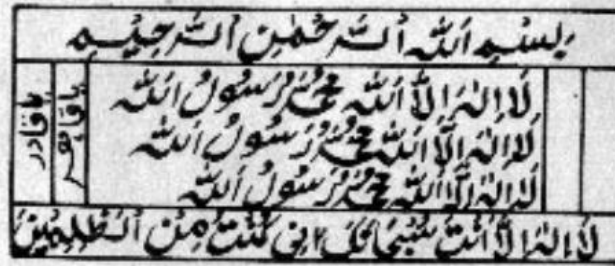 بسم الله الرحمن الرحيم
لا اله الا الله محمد رسول الله
لا اله الا الله محمد رسول الله
لا اله الا الله محمد رسول الله
يا قادر
لا اله الا انت سبحانك انى كنت من الظلمين